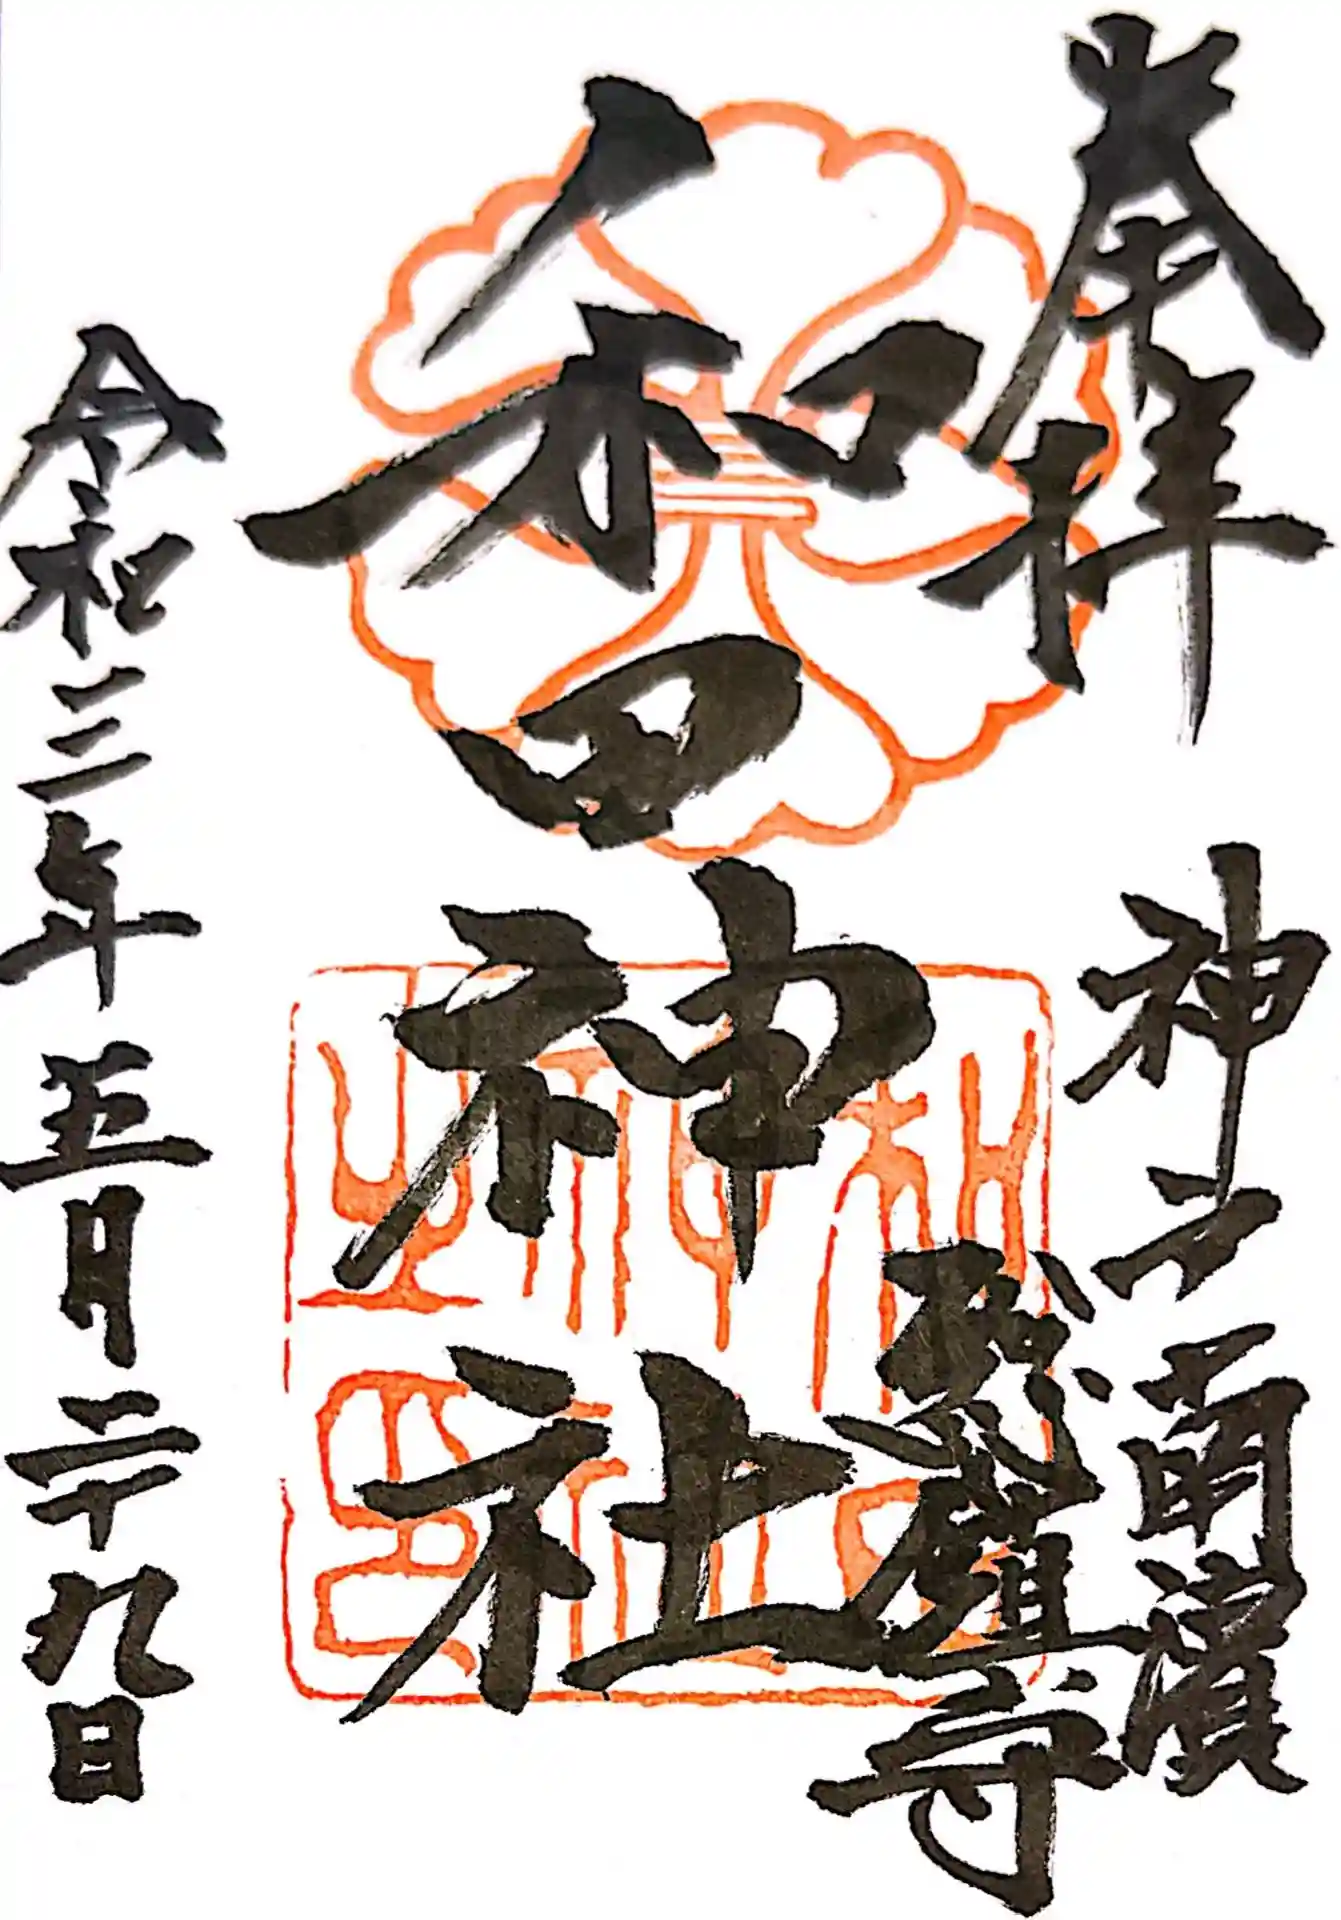 奉拝
神戸南濱
総鎮守
和田神社
令和三年五月二十九日